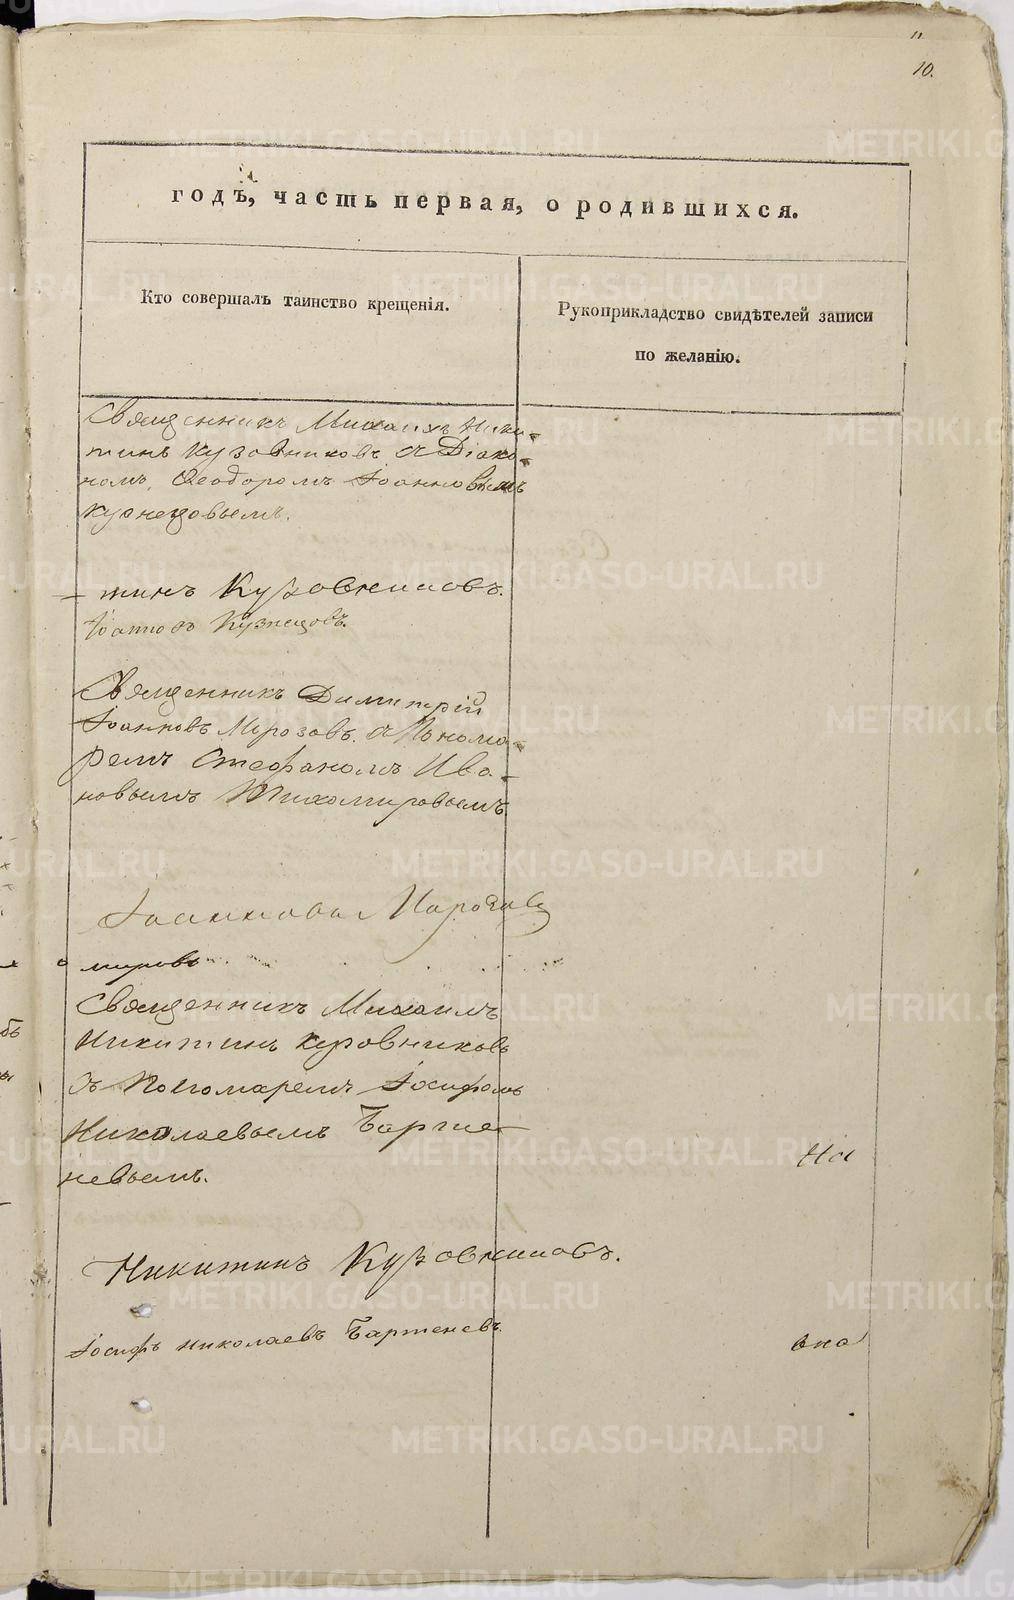 11
10.
годъ, часть первая, о родившихся.
Кто совершалъ таинство крещенія.
Рукоприкладство свидѣтелей записи
по желанію.
Священникъ Михаилъ Ники-
тинъ Кузовниковъ съ Діако-
номъ Ѳеодоромъ Іоанновымъ
Кузнецовымъ.
тинъ Кузовниковъ.
Іоанновъ Кузнецовъ.
Священникъ Димитрій
Іоанновъ Морозовъ съ Понома-
ремъ Стефаномъ Ива-
новымъ Тихомировымъ
Іоанновъ Морозовъ
мировъ
Священникъ Михаилъ
Никитинъ Кузовниковъ
съ Пономаремъ Іосифомъ
Николаевымъ Бартe-
невымъ.
На
Никитинъ Кузовниковъ.
Іосифъ Николаевъ Бартеневъ.
она
METRIKI.GASO-URAL.RU